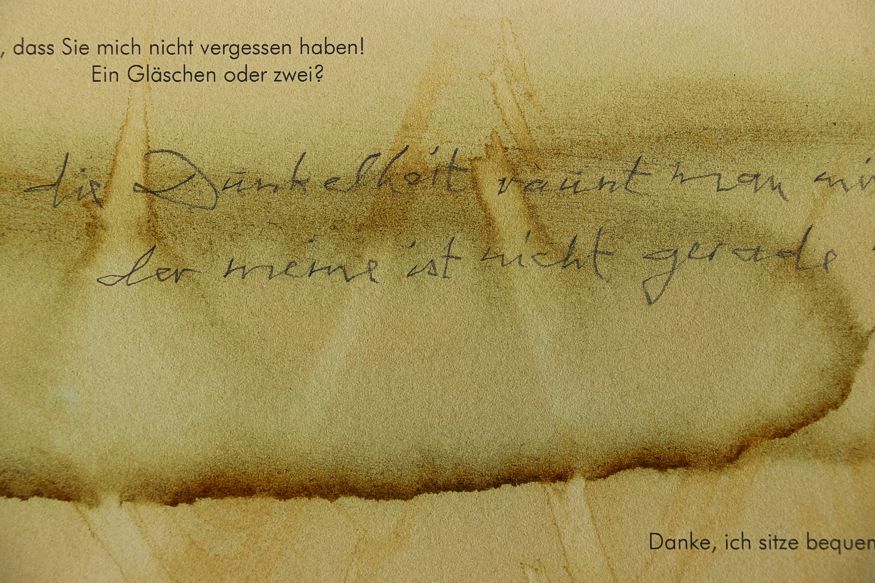 , dass Sie mich nicht vergessen haben!
Ein Gläschen oder zwei?
die Dunkelheit raunt man
der meine ist nicht gerade
Danke, ich sitze bequem